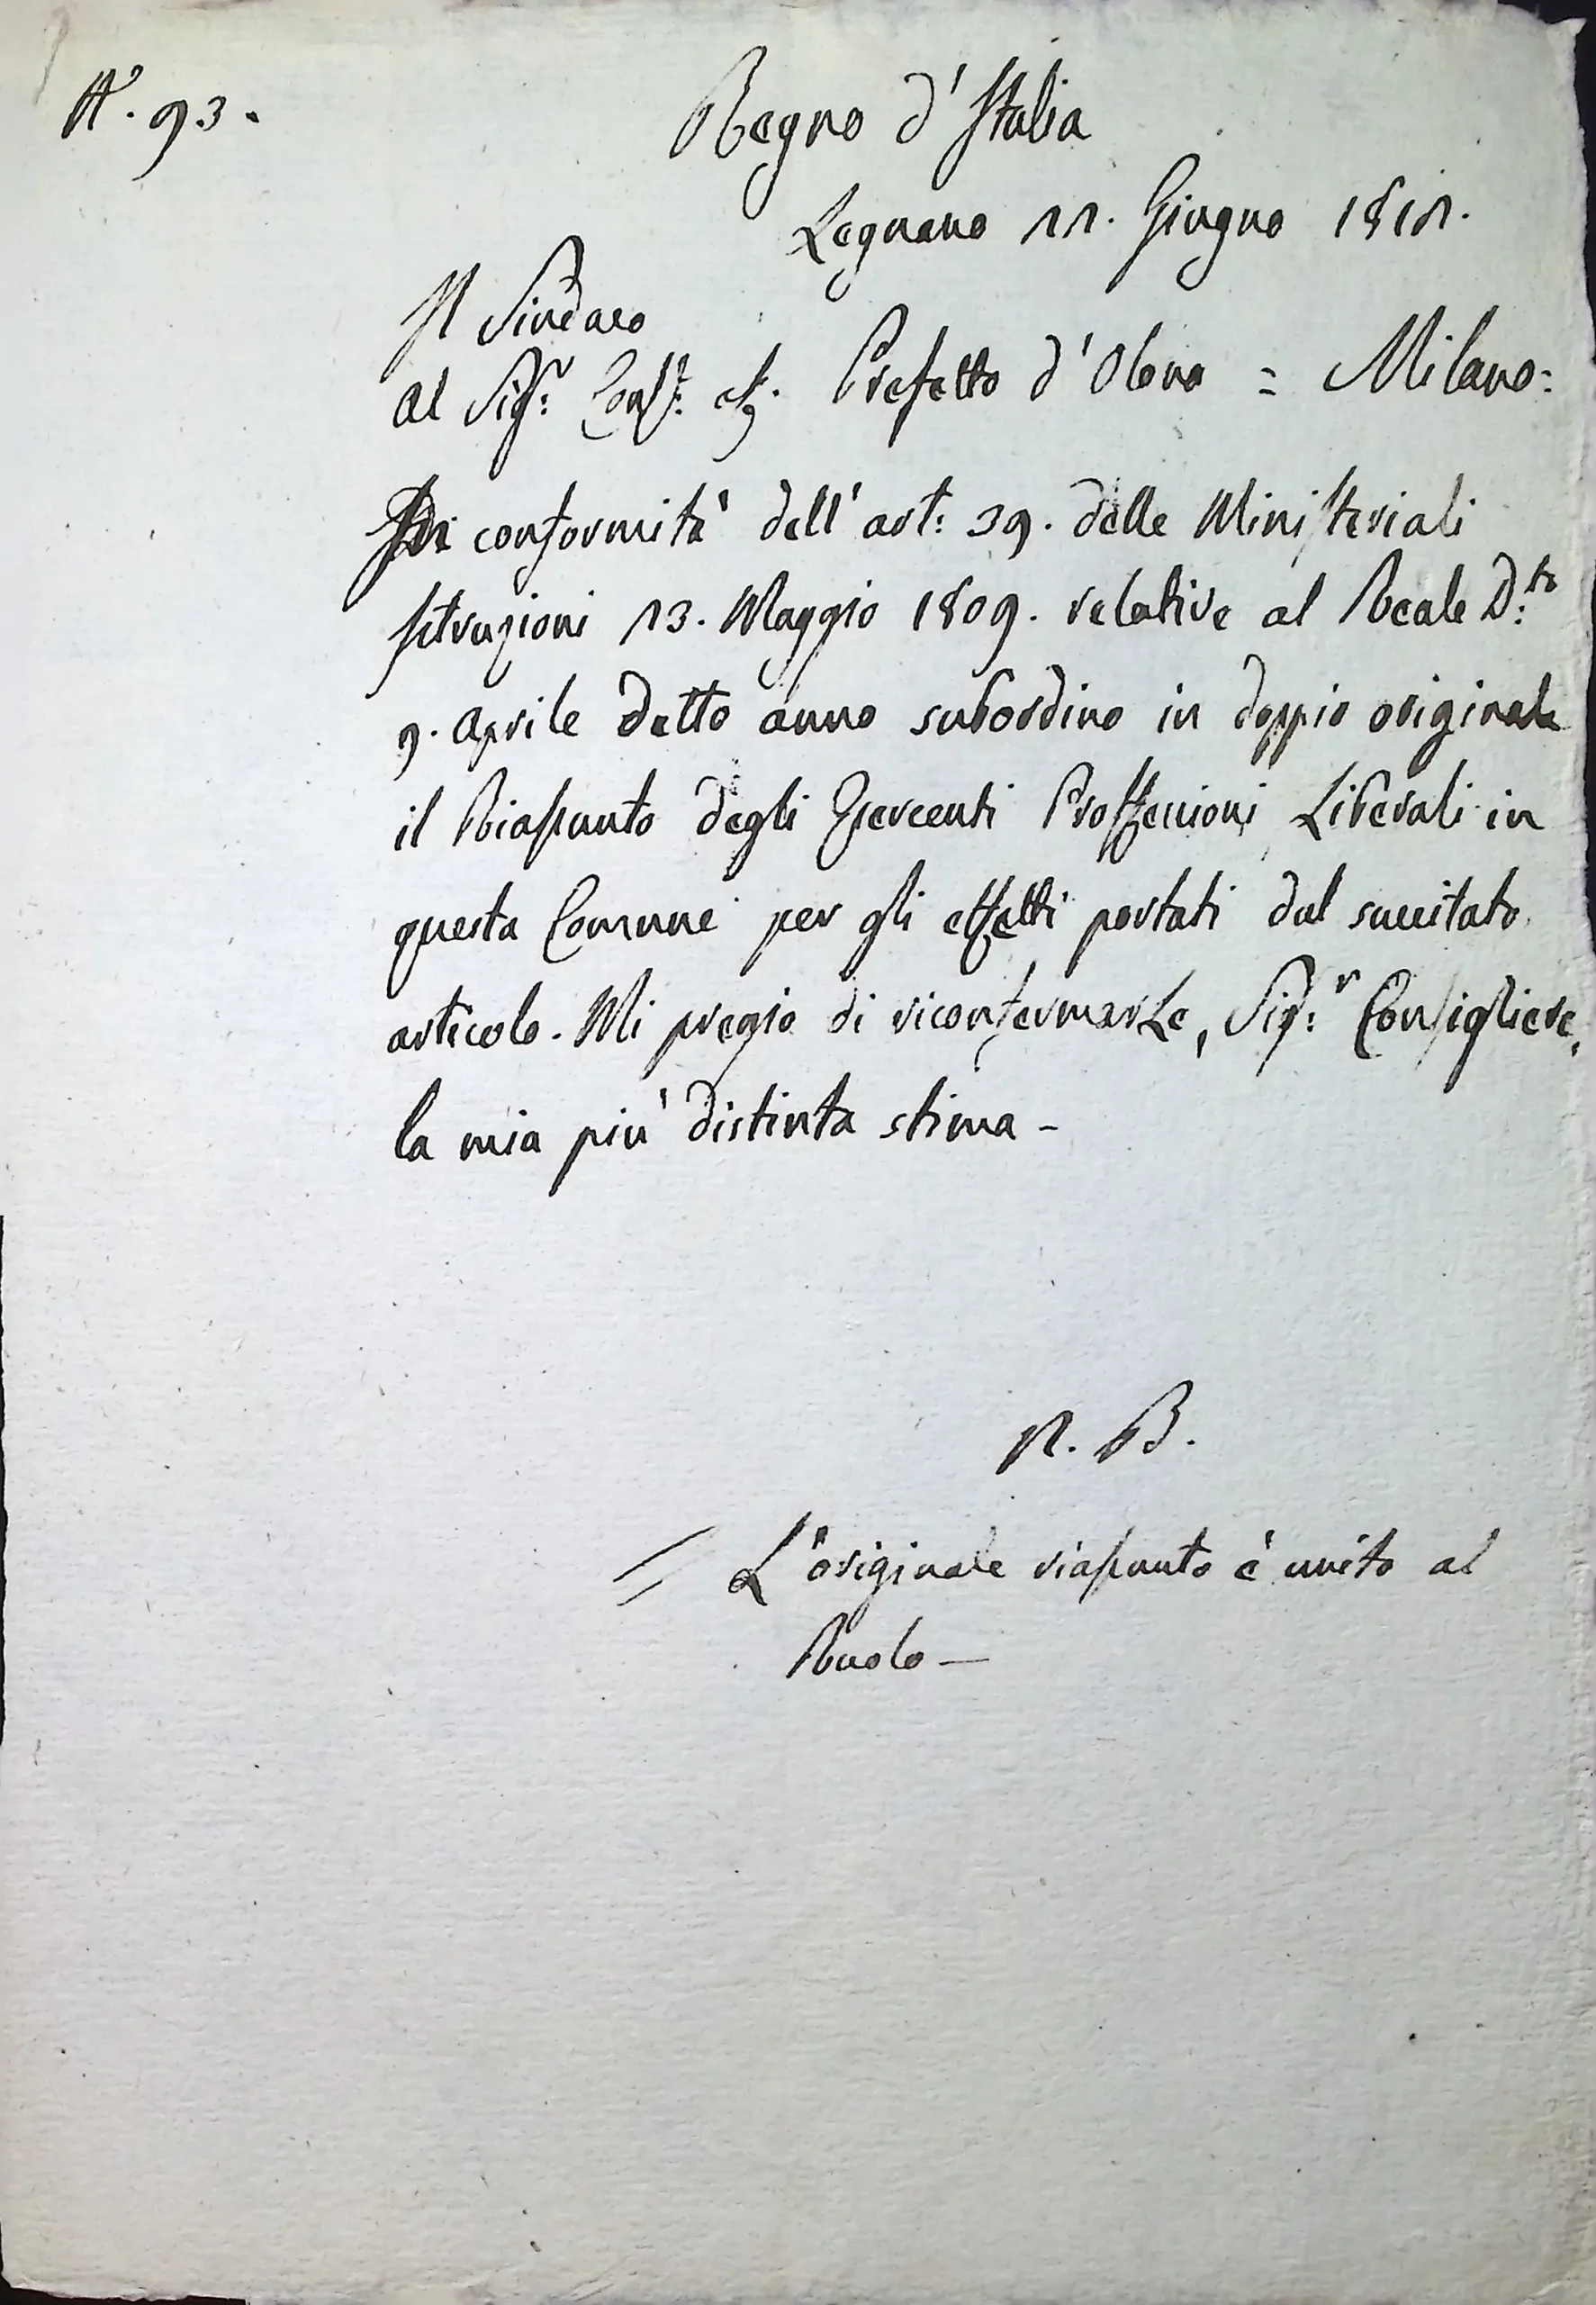 N.° 93.
Regno d'Italia
Legnano 11. Giugno 1811.
Il Sindaco
Al Sig.r Cons.e Prefetto d'Olona = Milano =
In conformità dell'art: 39. delle Ministeriali
Istruzioni 13. Maggio 1809. relative al Reale D.to
9. Aprile detto anno subordino in doppio originale
il Riassunto degli Esercenti Proffessioni Liberali in
questa Comune per gli effetti portati dal succitato
articolo. Mi pregio di riconfermarLe, Sig.r Consigliere,
la mia più distinta stima -
N. B.
= L'originale riassunto è unito al
Ruolo —